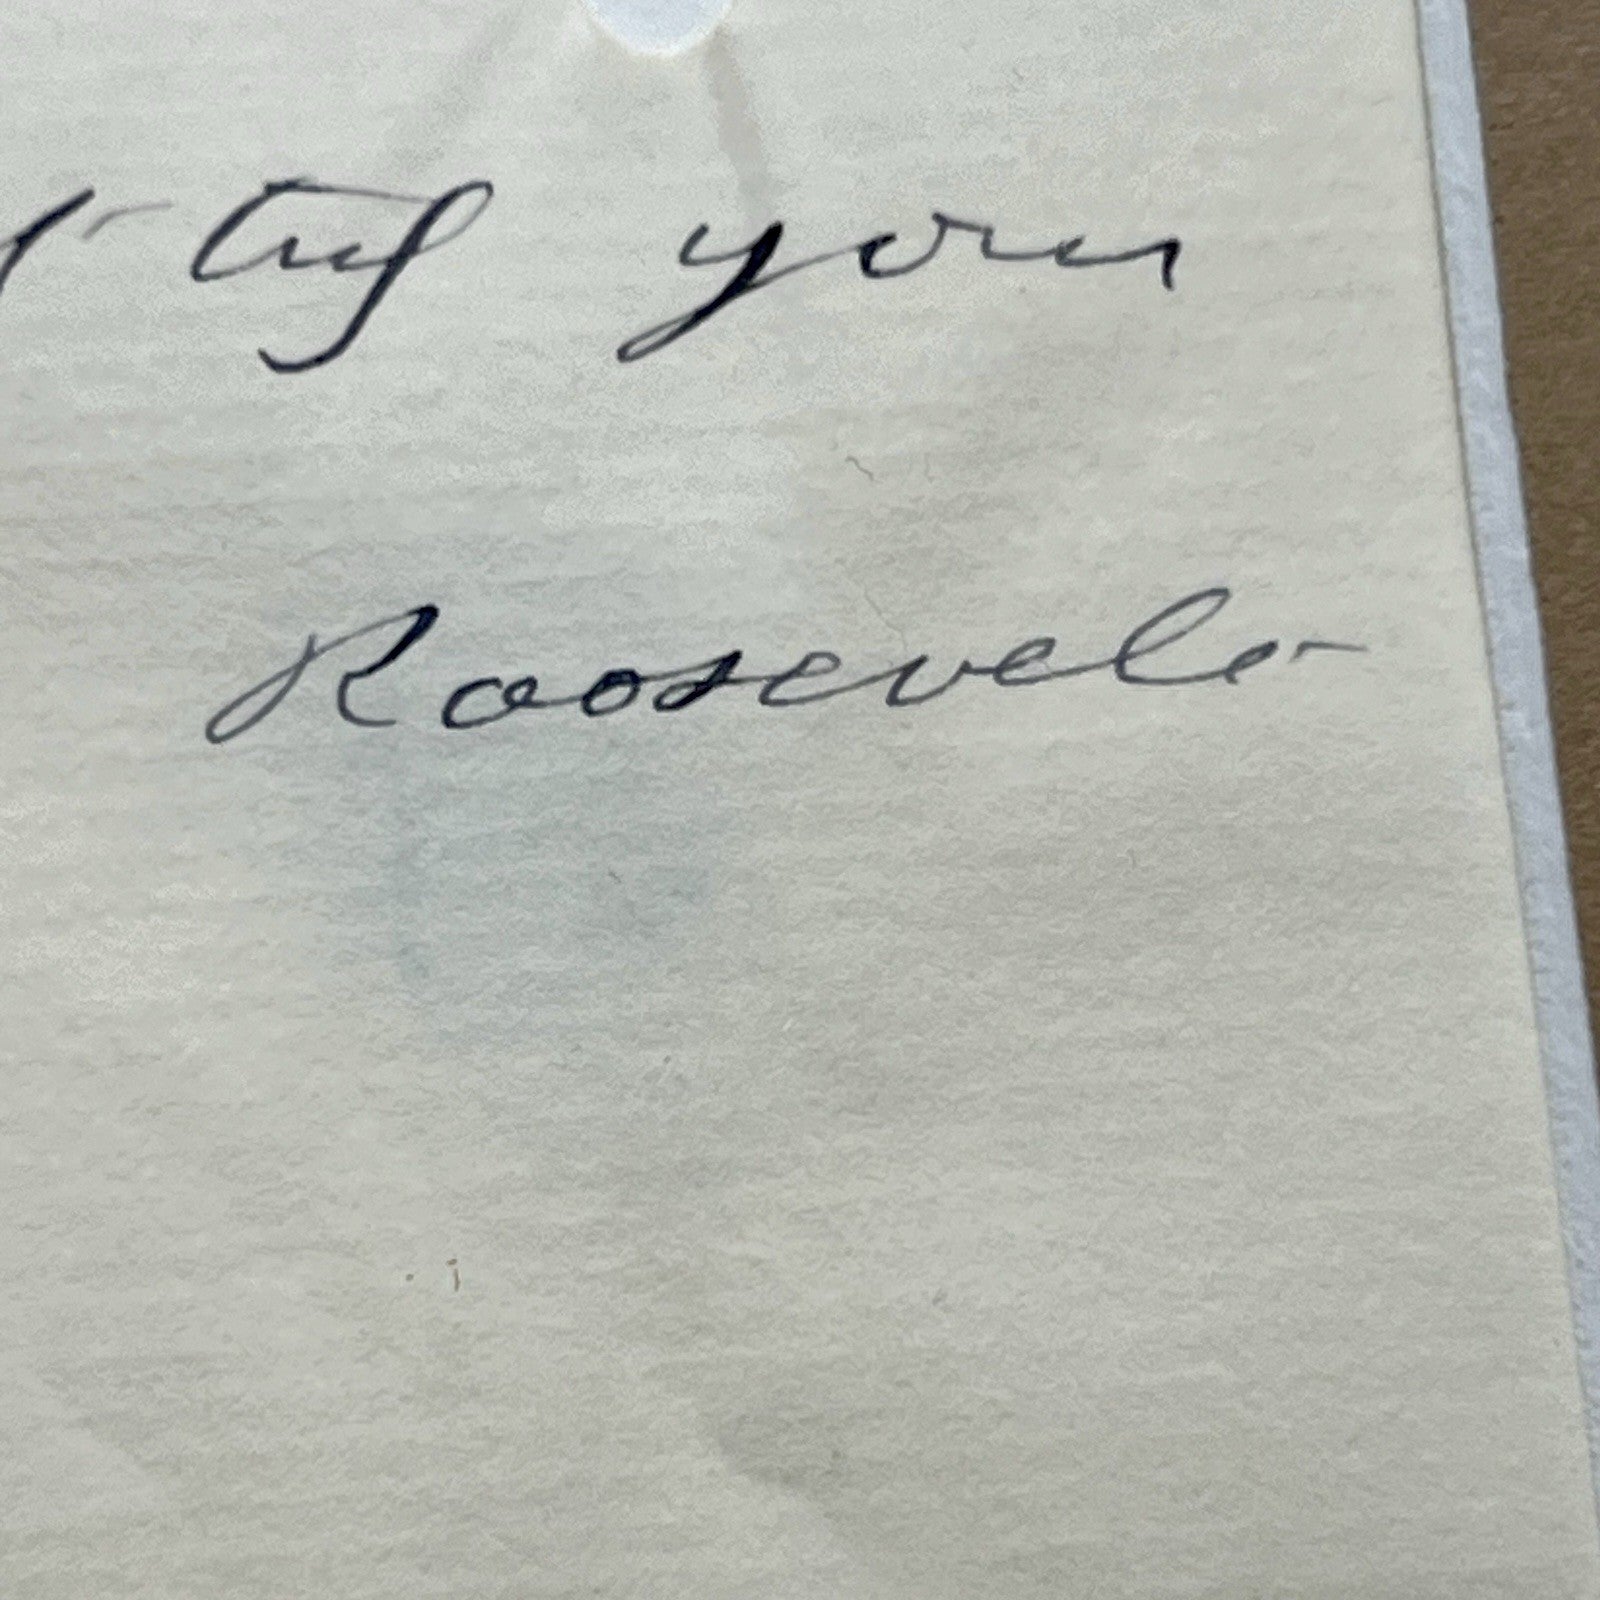 truly yours
Roosevelt